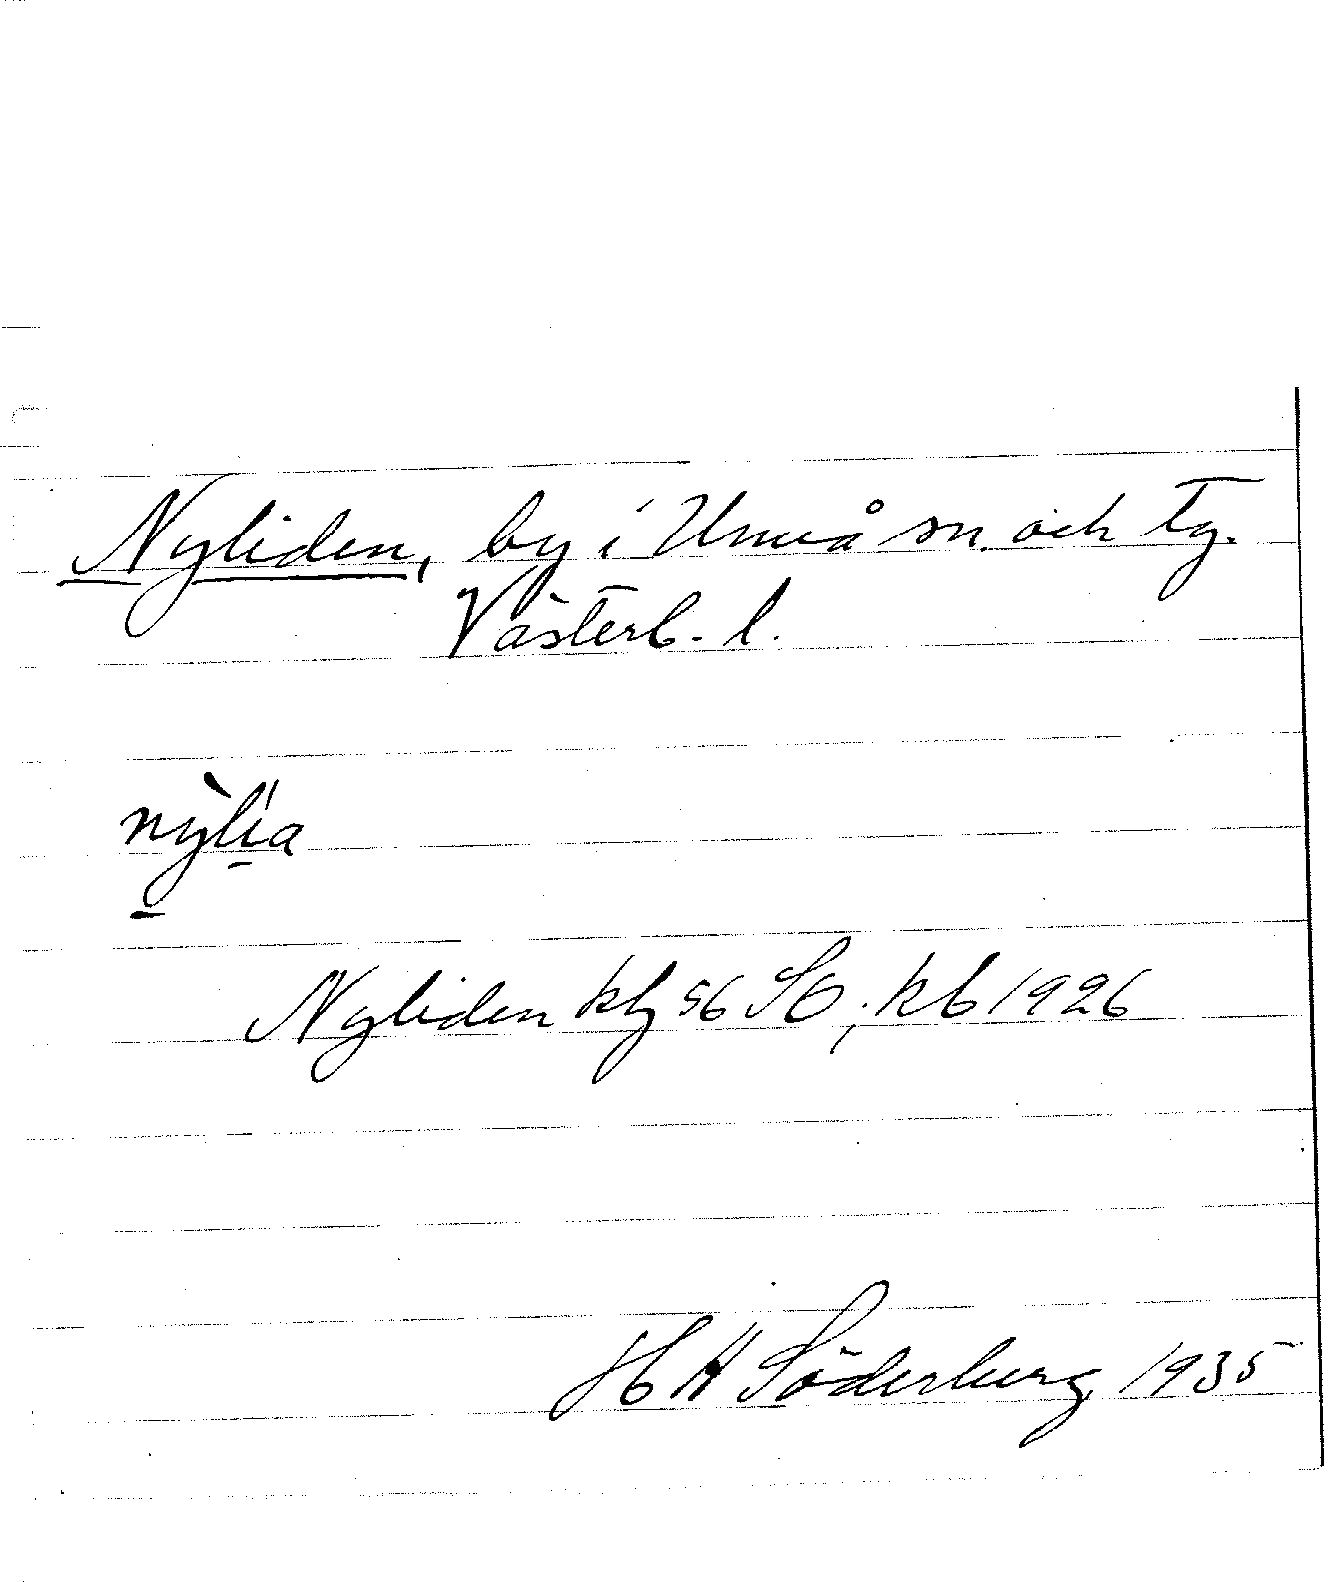 Nyliden, by i Umeå sn. och tg.
Västerb. l.
nỳlia
Nyliden kbl 56 SO; kb 1926
H A Söderberg 1935